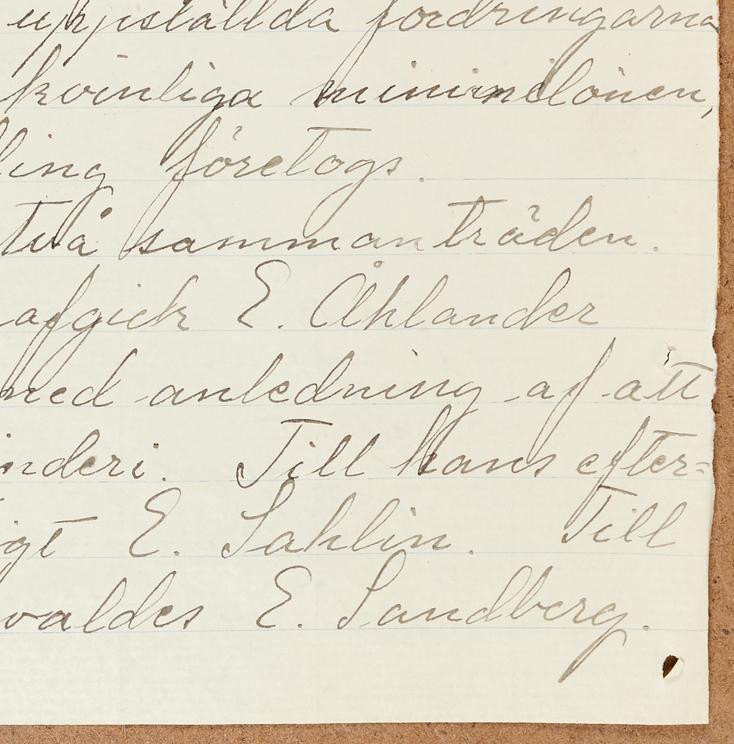 uppställda fordringarna
kvinliga minimilönen,
ling företogs.
två sammanträden.
afgick E. Åhlander
med anledning af att
inderi. Till hans efter=
igt E. Sahlin. Till
valdes E. Sandberg.